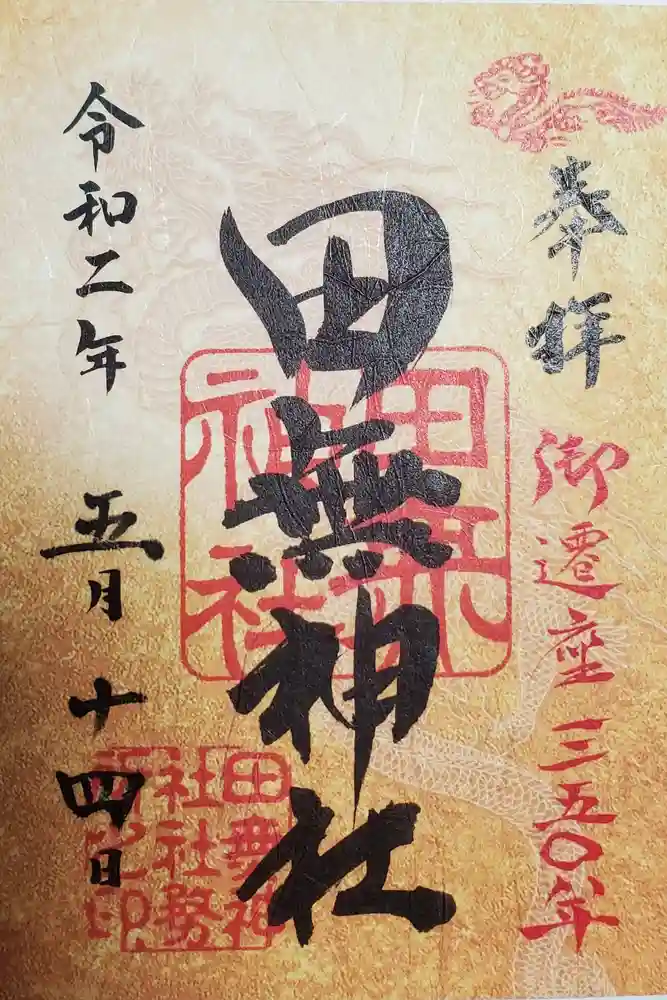 奉拝
御遷座三五〇年
田無神社
田無神社
令和二年
五月十四日
田無神
社社務
所之印